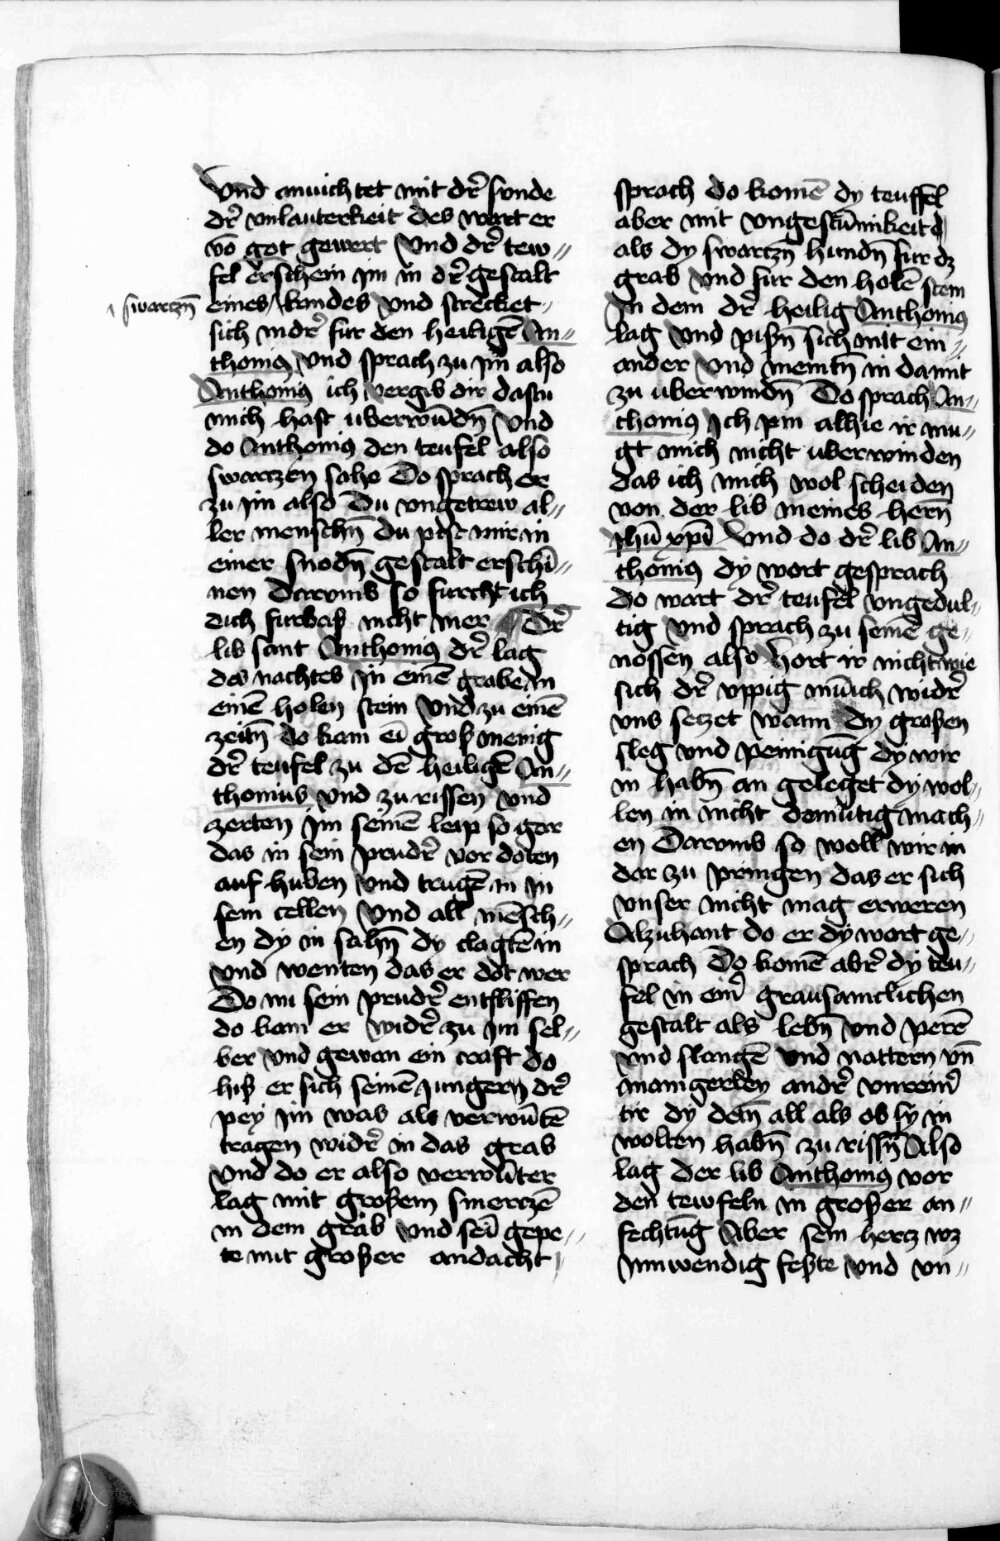 Vnd anuichtet mit dr̃ sunde
dr̃ vnlauterkeit des wart er
võ got gewert Vnd dr̃ tew//
fel erschein im in dr̃ gestalt
swarczñ
eines kindes Vnd strecket
sich nidr̃ fur den heiligẽ An//
thonig Vnd sprach zu im also
Anthonig ich vergib dir dastu
mich hast uberwũdñ Vnd
do Anthonig den teufel also
swarczen sahe Do sprach er
zu im also Du vngetrew al//
ler menschñ du pist mir in
einer snodñ gestalt erschĩ//
nen Darvmb so furcht ich
dich furbas nicht mer Dr̃
lib sant Anthonig dr̃ lag
das nachtes in einẽ grabe in
einẽ holen stein Vnd zu einẽ
zeitñ do kam eĩ groß menig
dr̃ teufel zu dẽ heiligẽ An//
thonius Vnd zu rissen Vnd
zerten im seinẽ leip so gar
das in sein prudr̃ vor doten
auf huben Vnd trugẽ in in
sein cellen Vnd all mẽsch//
en dy in sahñ dy clagtẽ in
vnd wenten das er dot wer
Do nu sein prudr̃ entsliffen
do kam er widr̃ zu im sel//
ber Vnd gewan ein craft do
hiß er sich seinẽ jungern dr̃
pey im was als verwũtẽ
tragen widr̃ in das grab
Vnd do er also verwũter
lag mit großem smerczẽ
in dem grab Vnd seĩ gepe//
te mit großer andacht
sprach do komẽ dy teuffel
aber mit vngestũmikeit
als dy swarczñ hundñ fur dz
grab Vnd fur den holẽ stein
In dem dr̃ heilig Anthonig
lag Vnd pißñ sich mit ein//
ander Vnd meintñ in damit
zu uberwindñ Do sprach An//
thonig Ich pin alhie ir mu//
gt mich nicht uberwinden
das ich mich wol scheiden
von der lib meines herñ
jhũ xpĩ Vnd do dr̃ lib An//
thonig dy wort gesprach
do wart dr̃ teufel vngedul//
tig Vnd sprach zu seinẽ ge//
nossen also hort ir nicht wie
sich dr̃ vppig mũich widr̃
vns seczet wann dy großen
sleg vnd peinigũg dy wir
in habñ an geleget dy wol//
len in nicht demutig mach//
en Darvmb so woll wir in
dar zu pringen das er sich
vnser nicht mag erweren
Alzuhant do er dy wort ge//
sprach Do komẽ abr̃ dy teu//
fel in eiñ grausamclichen
gestalt als lebñ Vnd perẽ
vnd slangẽ Vnd nattern vñ
manigerley andr̃ vnreiñ
tir dy detñ all als ob sy in
wolten habñ zu rissñ Also
lag der lib Anthonig vor
den tewfeln in großer an//
fechtũg Aber sein hercz wz
Inwendig feste Vnd vn//